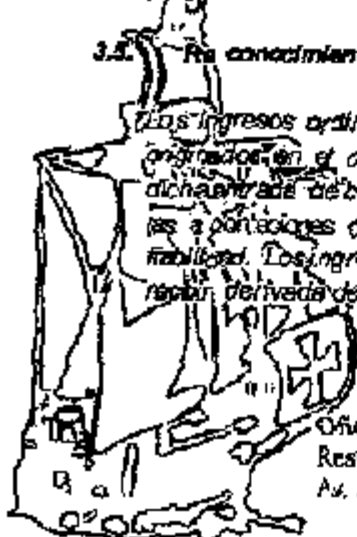 3.5. Re conocimien
Los ingresos ordin
originados en el
dicha entrada deb
las aportaciones
fiabilidad. Los ingre
derivada de
Ofic
Res
Av.